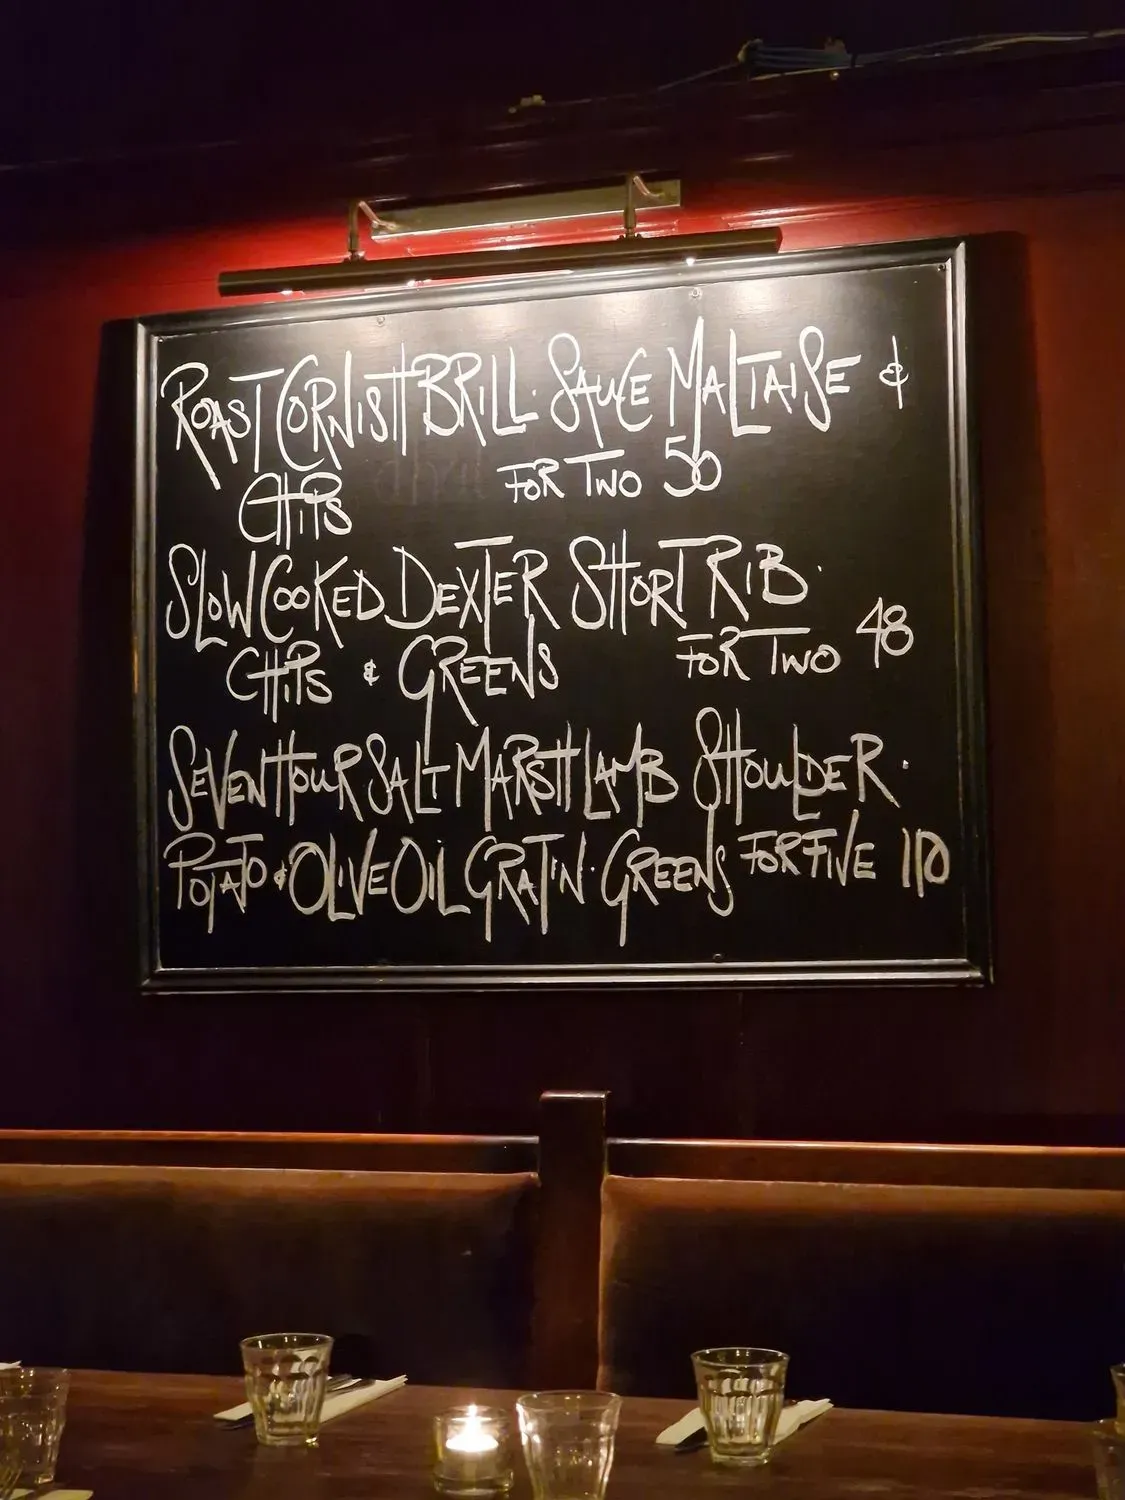 ROAST CORNISH BRILL. SAUCE MALTAISE &
CHIPS FOR TWO 50
SLOW COOKED DEXTER SHORT RIB.
CHIPS & GREENS FOR TWO 48
SEVEN HOUR SALT MARSH LAMB SHOULDER.
POTATO & OLIVE OIL GRATIN. GREENS FOR FIVE 110